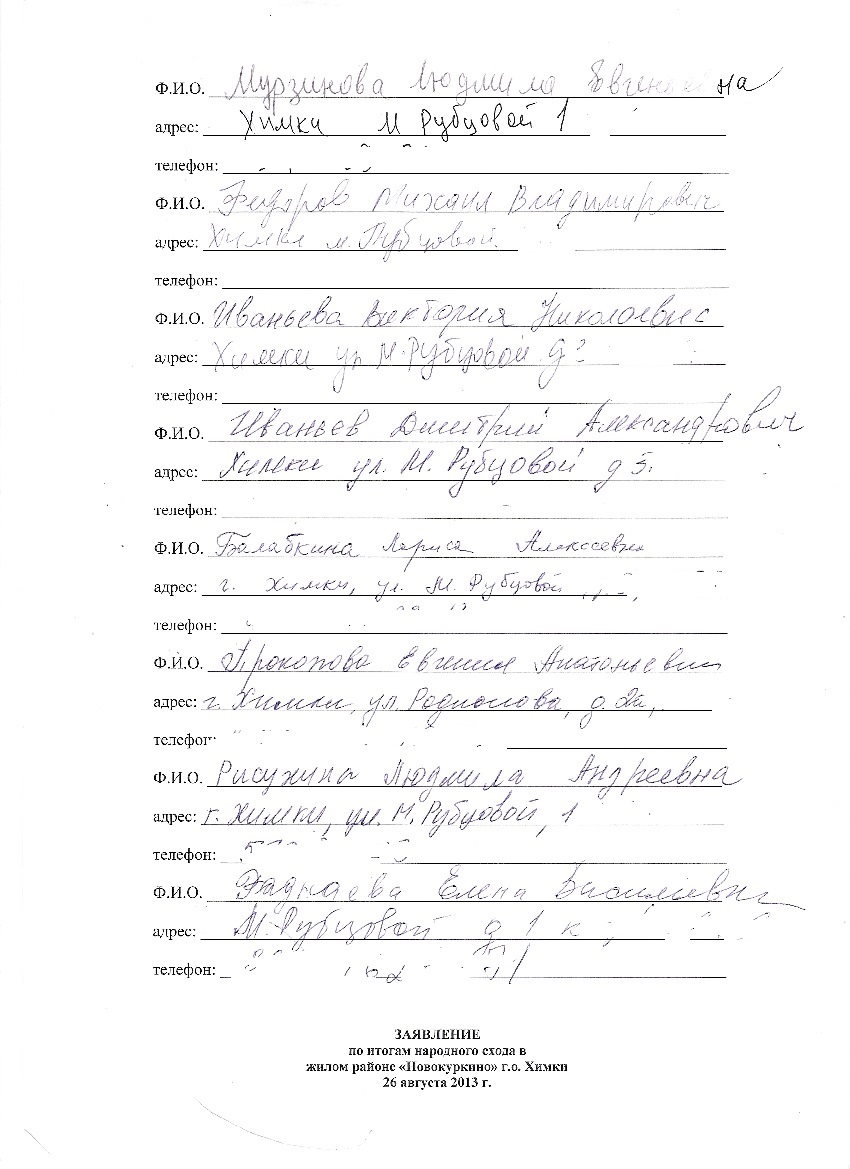 Ф.И.О. Мурзинова Людмила Евгеньевна
адрес: Химки М Рубцовой 1
телефон:
Ф.И.О. Федоров Михаил Владимирович
адрес: Химки м. Рубцовой.
телефон:
Ф.И.О. Иваньева Виктория Николаевна
адрес: Химки ул М. Рубцовой д
телефон:
Ф.И.О. Иваньев Дмитрий Александрович
адрес: Химки ул. М. Рубцовой д 5.
телефон:
Ф.И.О. Балабкина Лариса Алексеевна
адрес: г. Химки, ул. М. Рубцовой
телефон:
Ф.И.О. Прокопова Евгения Анатольевна
адрес: г. Химки, ул. Родионова, д. 2а,
телефон
Ф.И.О. Рисухина Людмила Андреевна
адрес: г. Химки, ул. М. Рубцовой, 1
телефон:
Ф.И.О. Елена Васильевна
адрес: М. Рубцовой д 1 к
телефон:
ЗАЯВЛЕНИЕ
по итогам народного схода в
жилом районе «Новокуркино» г.о. Химки
26 августа 2013 г.